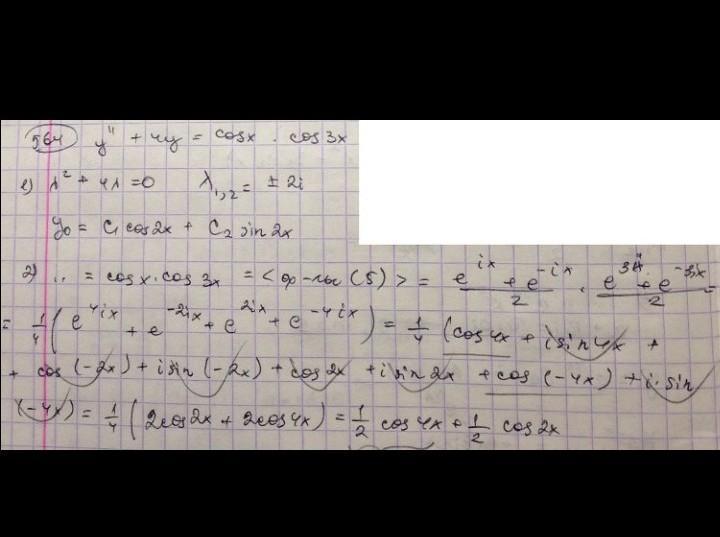 564 y'' + 4y = cosx · cos3x
1) λ² + 4λ = 0 λ₁,₂ = ± 2i
y₀ = C₁ cos2x + C₂ sin2x
2) .. = cosx · cos3x = < ф-лы (5) > = (e^{ix} + e^{-ix})/2 · (e^{3ix} + e^{-3ix})/2 =
= 1/4 (e^{4ix} + e^{-2ix} + e^{2ix} + e^{-4ix}) = 1/4 (cos4x + i sin4x +
+ cos(-2x) + i sin(-2x) + cos2x + i sin2x + cos(-4x) + i · sin
(-4x) = 1/4 (2cos2x + 2cos4x) = 1/2 cos4x + 1/2 cos2x